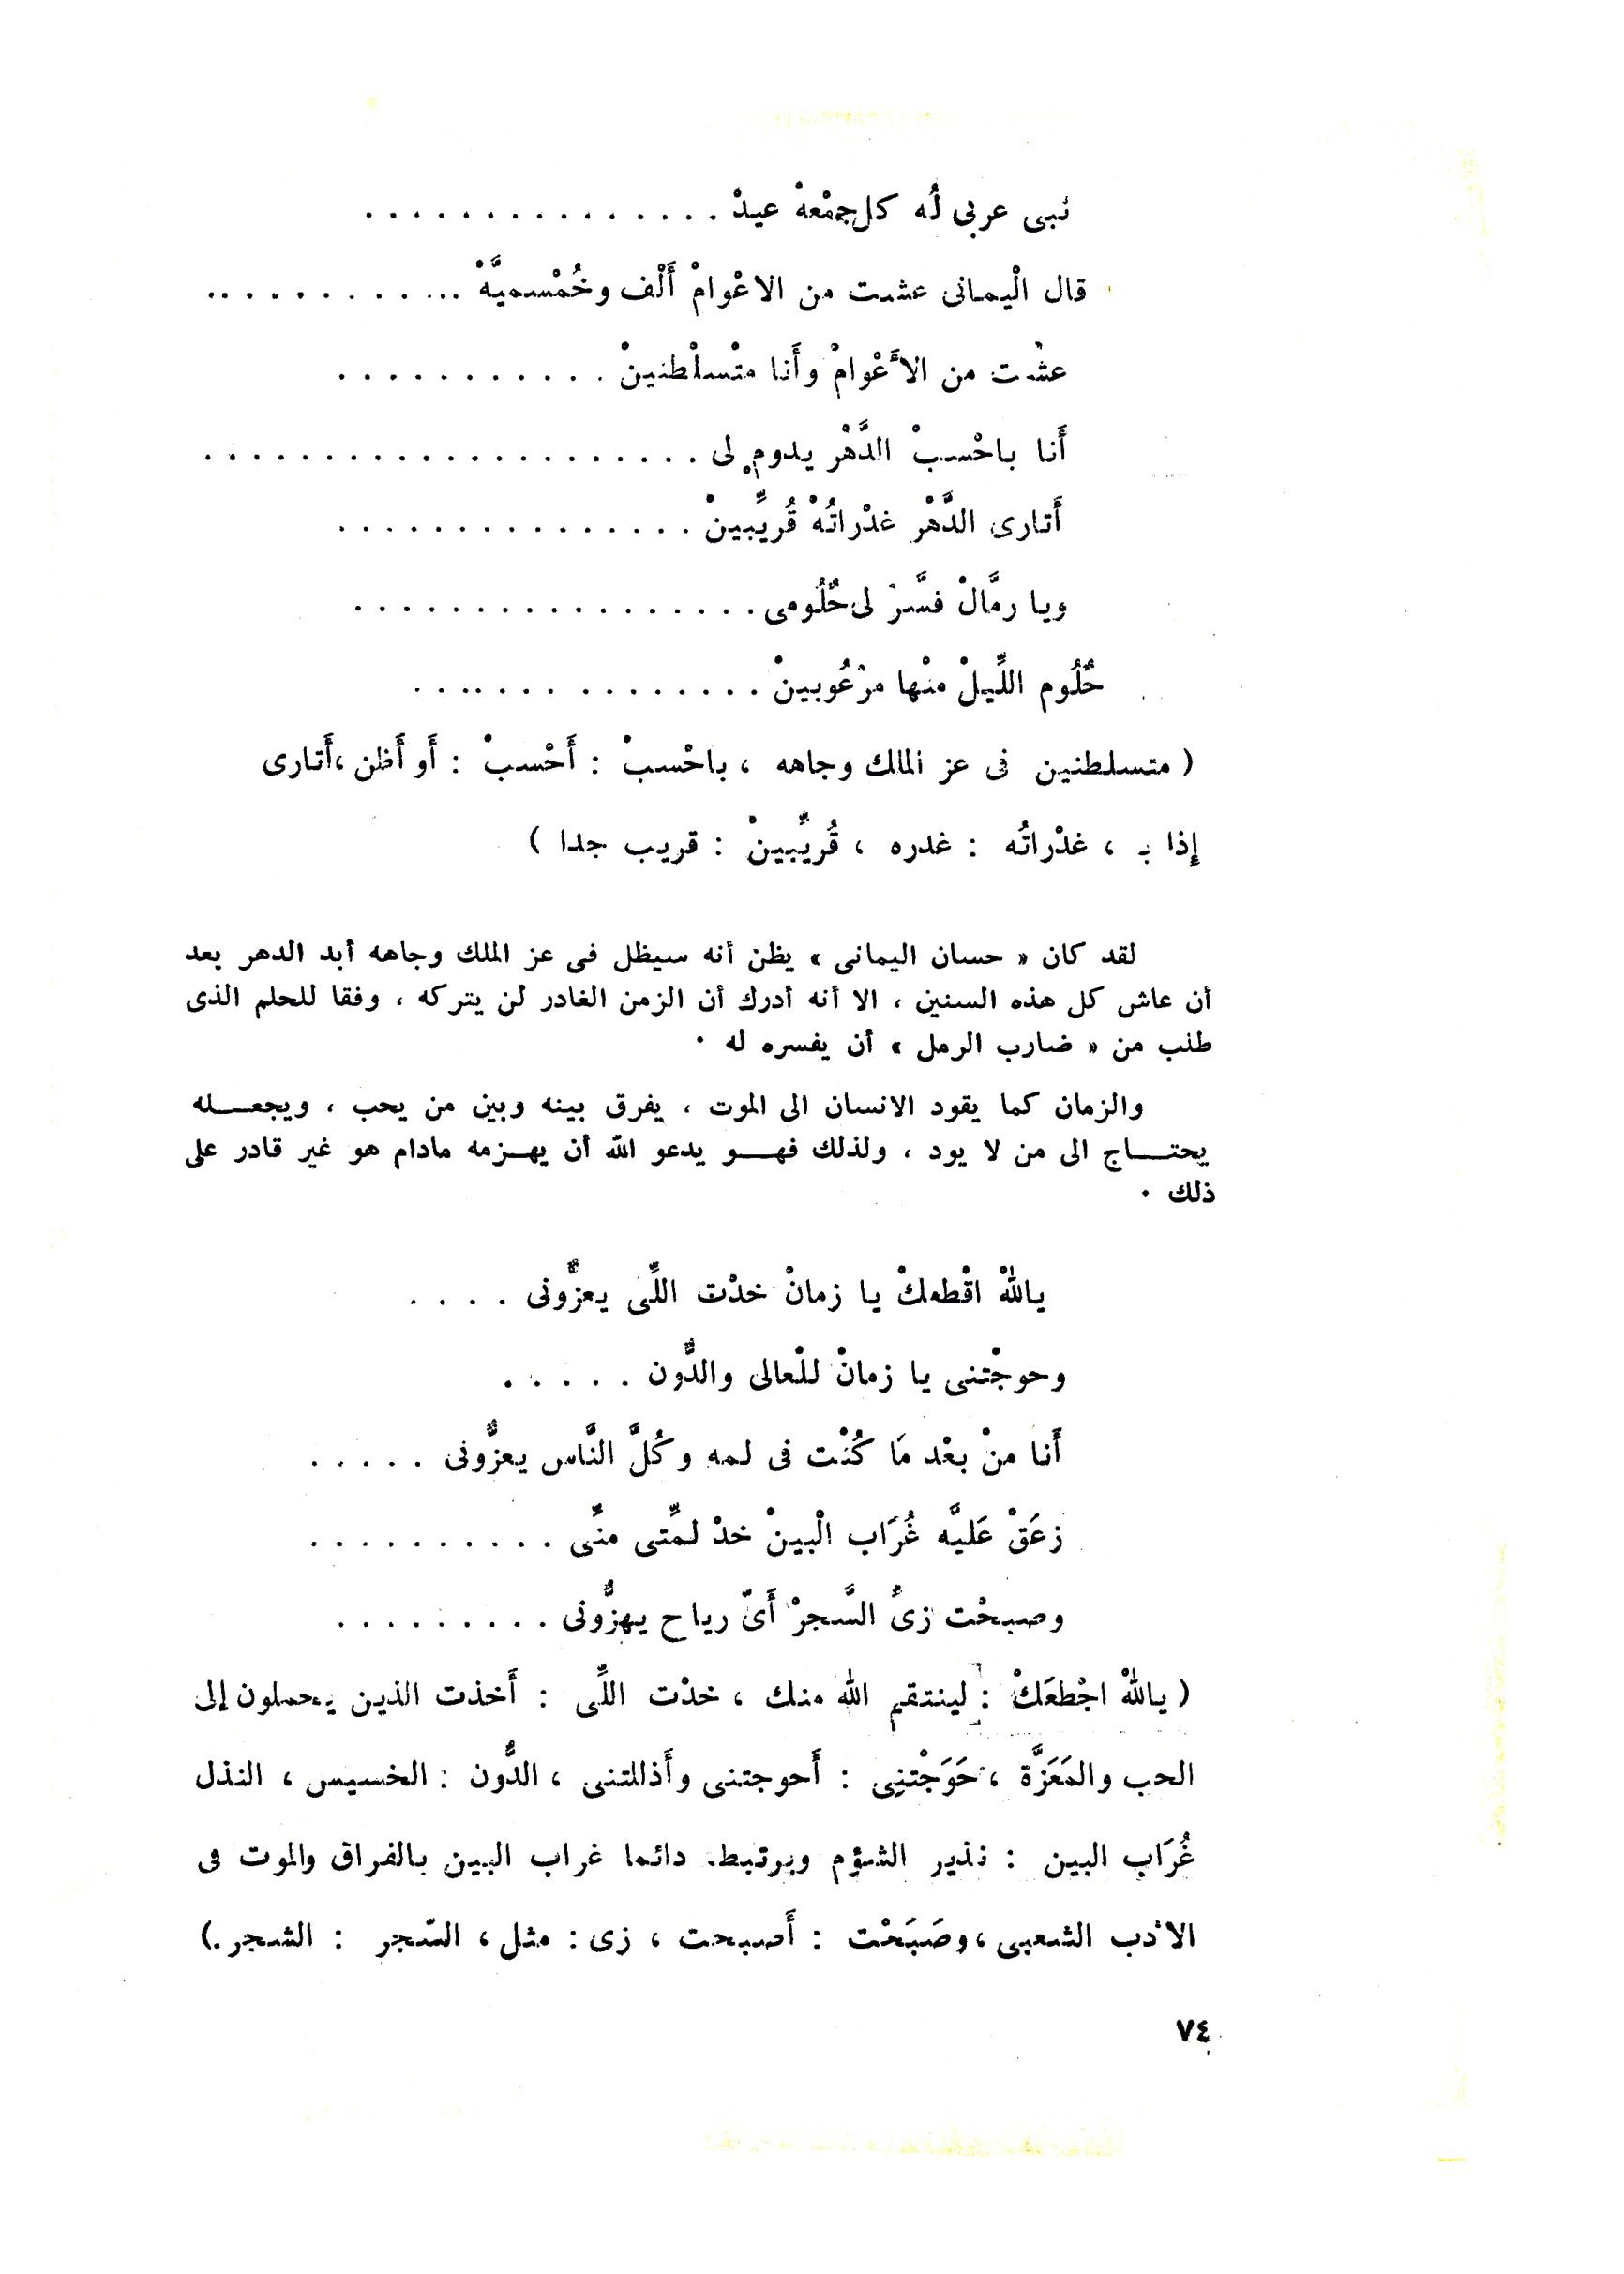 نبى عربى لُه كل جمْعهْ عيدْ . . . . . . . . . . . . . . .
قال الْيمانى عشت من الاعْوامْ أَلْف وخُمْسميَّهْ . . . . . . . . . . . .
عشْت من الأَعْوامْ وأَنا متْسلْطنينْ . . . . . . . . . . . .
أَنا باحْسبْ الدَّهْر يدوم لى . . . . . . . . . . . . . . . . . . . . .
أَتارى الدَّهْر غدْراتُهْ قُريِّبينْ . . . . . . . . . . . . . . .
ويا رمَّالْ فسَّرْ لى حُلُومى . . . . . . . . . . . . . . . . .
حُلُوم اللِّيلْ منْها مرْعُوبينْ . . . . . . . . . . . . . . .
( متسلطنين فى عز الملك وجاهه ، باحْسبْ : أَحْسبْ : أَو أَظن ، أَتارى
إِذا بـ ، غدْراتُه : غدره ، قُريِّبينْ : قريب جدا )
لقد كان « حسان اليمانى » يظن أنه سيظل فى عز الملك وجاهه أبد الدهر بعد
أن عاش كل هذه السنين ، الا أنه أدرك أن الزمن الغادر لن يتركه ، وفقا للحلم الذى
طلب من « ضارب الرمل » أن يفسره له ·
والزمان كما يقود الانسان الى الموت ، يفرق بينه وبين من يحب ، ويجعـــله
يحتـــاج الى من لا يود ، ولذلك فهـــو يدعو الله أن يهـزمه مادام هو غير قادر على
ذلك ·
ياللهْ اقْطعكْ يا زمانْ خدْت اللِّى يعزُّونى . . . .
وحوجْتنى يا زمانْ للْعالى والدُّون . . . . .
أَنا منْ بعْد مَا كُنْت فى لمه وكُلَّ النَّاس يعزُّونى . . . . .
زعَقْ عَليَّه غُرَاب الْبينْ خدْ لمِّتى منِّى . . . . . . . . . .
وصبحْت زىُّ السَّجرْ أَىّ رياح يهزُّونى . . . . . . . . .
( ياللهْ اجْطعَكْ : لينتقم الله منك ، خدْت اللِّى : أَخذت الذين يحملون إلى
الحب والمَعَزَّة ، حَوَجْتنِى : أَحوجتنى وأَذللتنى ، الدُّون : الخسيس ، النذل
غُرَاب البين : نذير الشؤم ويرتبط دائما غراب البين بالفراق والموت فى
الأدب الشعبى ، وصَبَحْت : أَصبحت ، زى : مثل ، السّجر : الشجر .)
٧٤